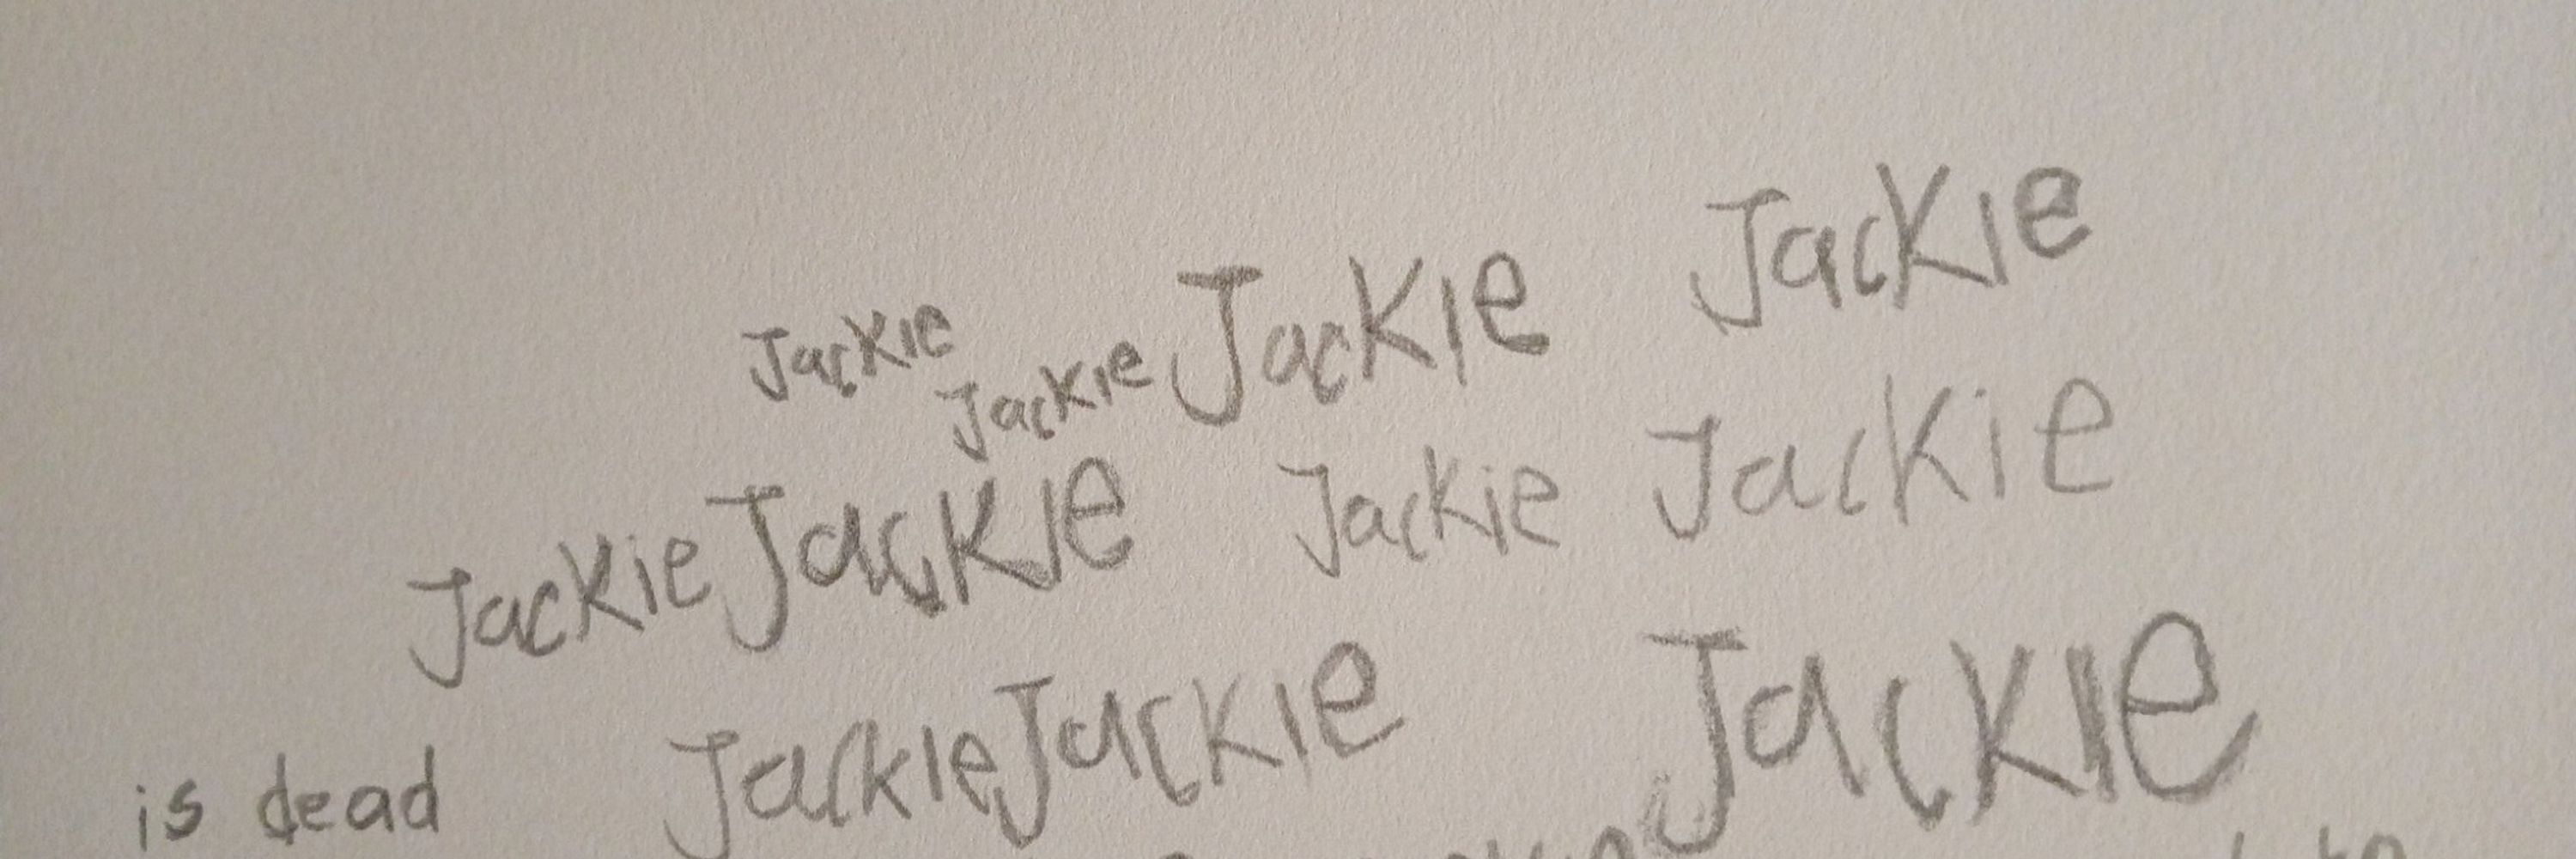 Jackie Jackie Jackie Jackie
Jackie Jackie Jackie Jackie
is dead Jackie Jackie Jackie